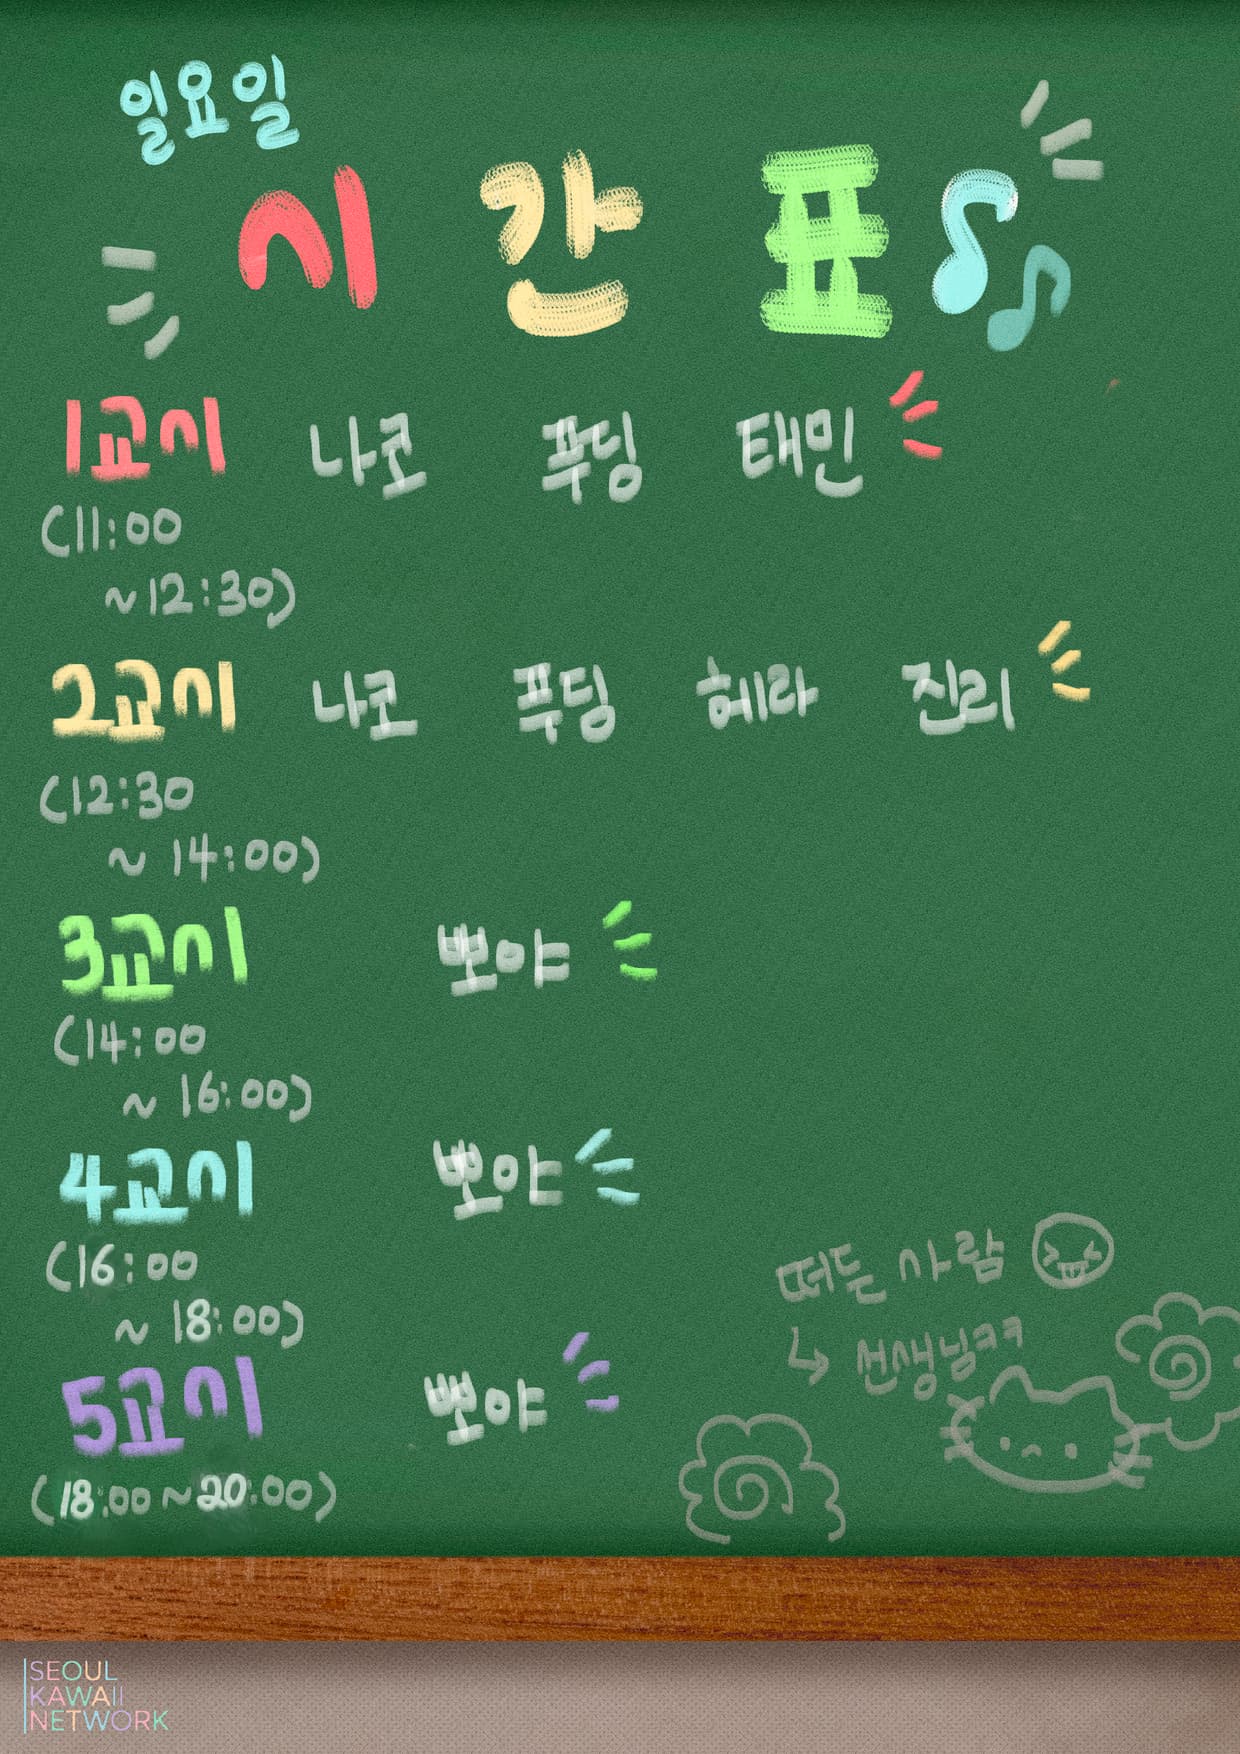 일요일
시 간 표
1교시 나코 푸딩 태민
(11:00
~12:30)
2교시 나코 푸딩 헤라 진리
(12:30
~ 14:00)
3교시 뽀야
(14:00
~ 16:00)
4교시 뽀야
(16:00
~ 18:00)
5교시 뽀야
(18:00~20:00)
떠든 사람
↳ 선생님ㅋㅋ
SEOUL
KAWAII
NETWORK